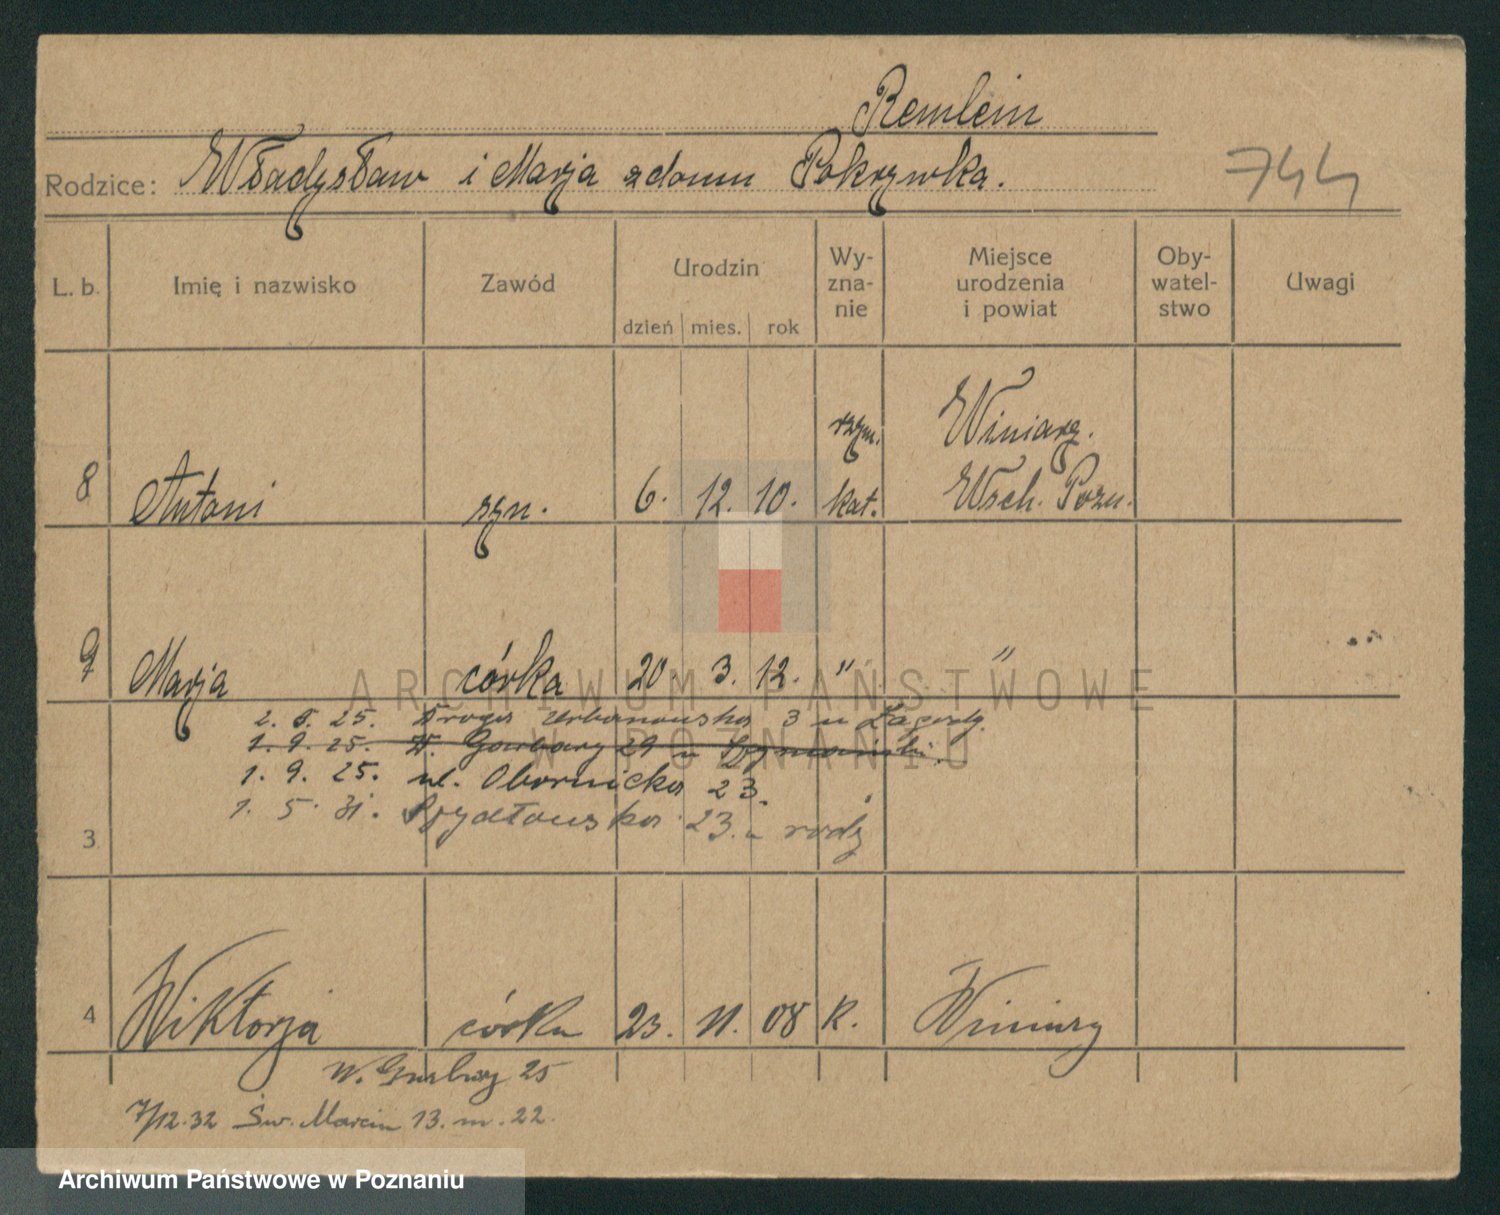 Remlein
Rodzice: Władysław i Marja z domu Pokrzywka.
744
L. b. Imię i nazwisko Zawód Urodzin dzień mies. rok Wy-zna-nie Miejsce urodzenia i powiat Oby-watel-stwo Uwagi
rzym. Winiary.
8 Antoni syn. 6. 12. 10. kat. Wsch. Pozn.
9 Marja córka 20. 3. 12. " "
ARCHIWUM PAŃSTWOWE
W POZNANIU
2. 5. 25. Droga Urbanowska 3 u Zagrody
1. 9. 25. W. Garbary 29 u Szymański.
1. 9. 25. ul. Obornicka 23.
1. 5. 31. 23. u rodz
3
4 Wiktorja córka 23. 11. 08 k. Winiary
W. Garbary 25
7/12.32 Św. Marcin 13. m. 22.
Archiwum Państwowe w Poznaniu